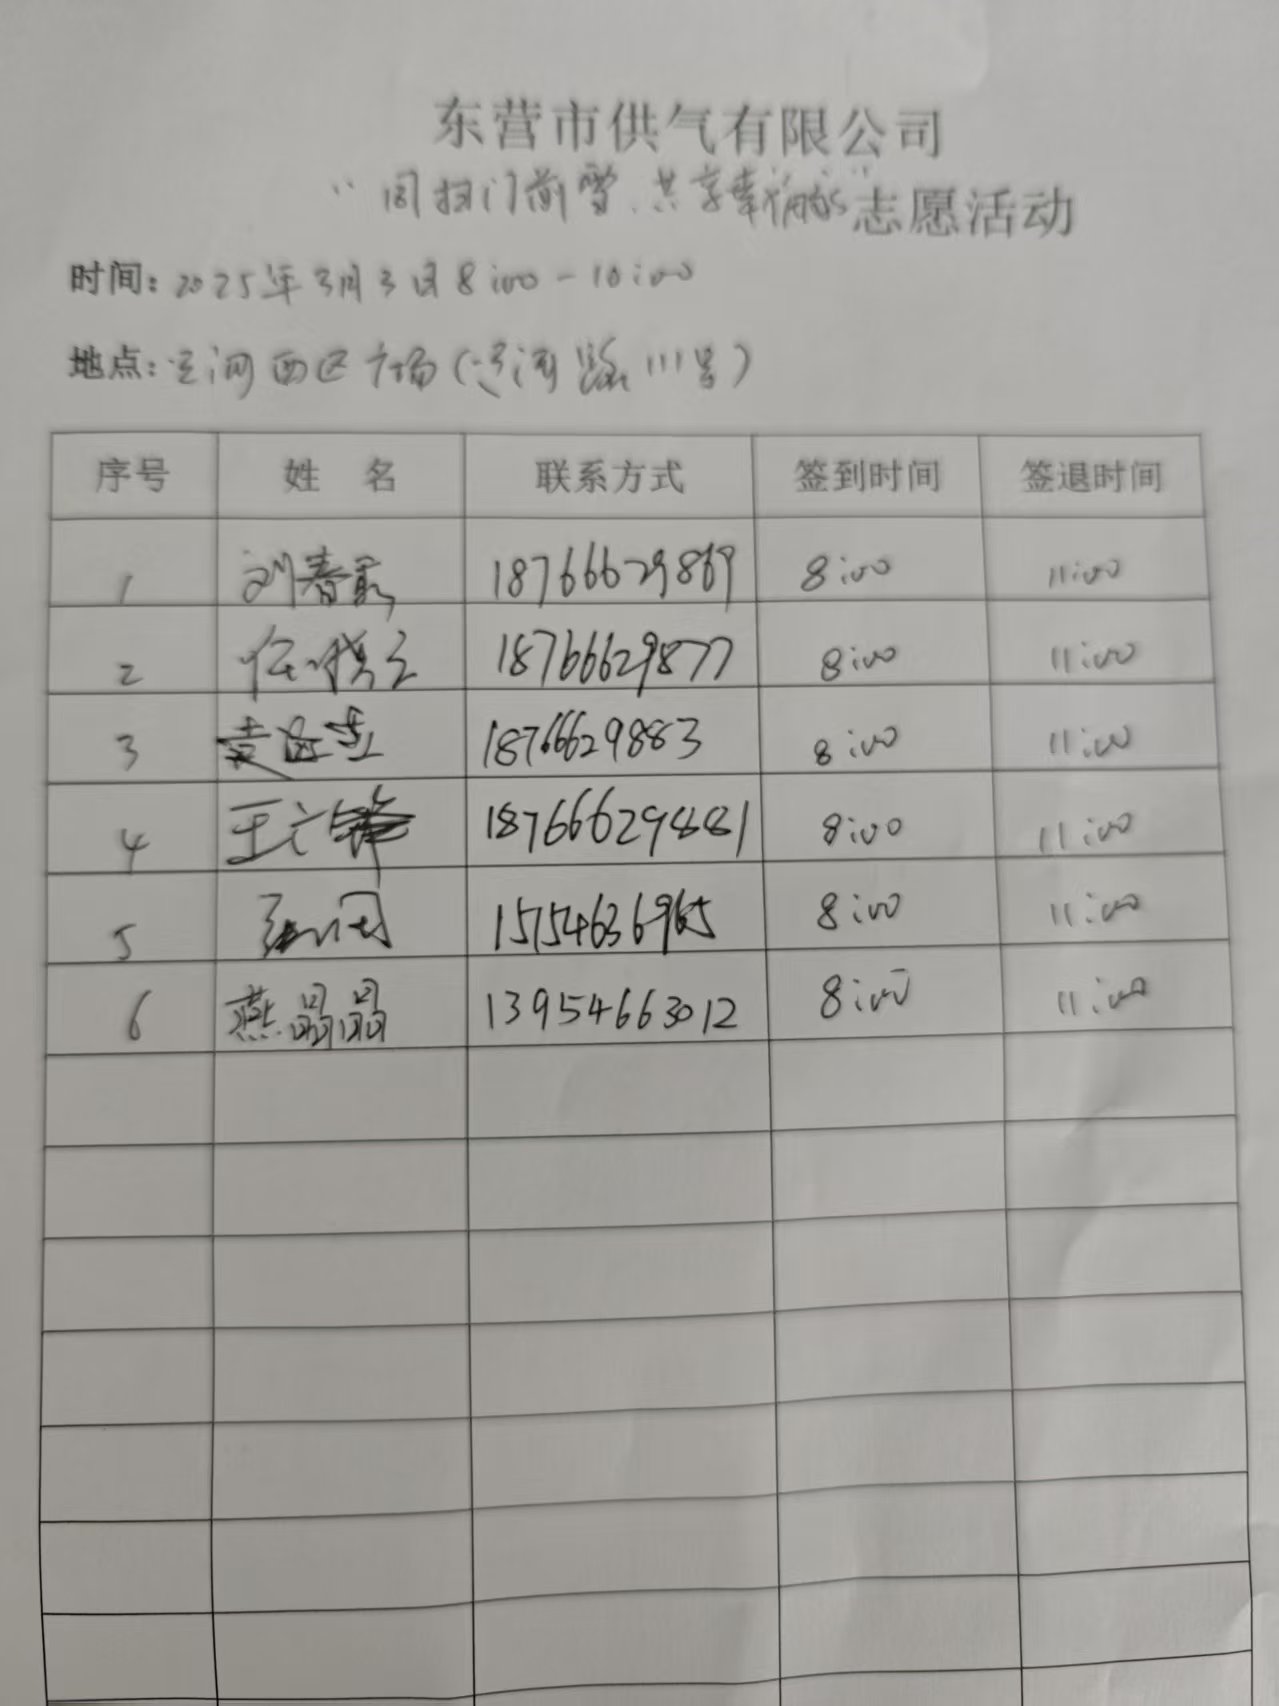 东营市供气有限公司
“同扫门前雪、共享幸福” 志愿活动
时间: 2025年3月3日8:00-10:00
地点: 河西区广场(河路111号)
序号 姓 名 联系方式 签到时间 签退时间
1 刘春 18766629869 8:00 11:00
2 任 18766629877 8:00 11:00
3 18766629883 8:00 11:00
4 王 18766629881 8:00 11:00
5 15154636965 8:00 11:00
6 燕晶晶 13954663012 8:00 11:00